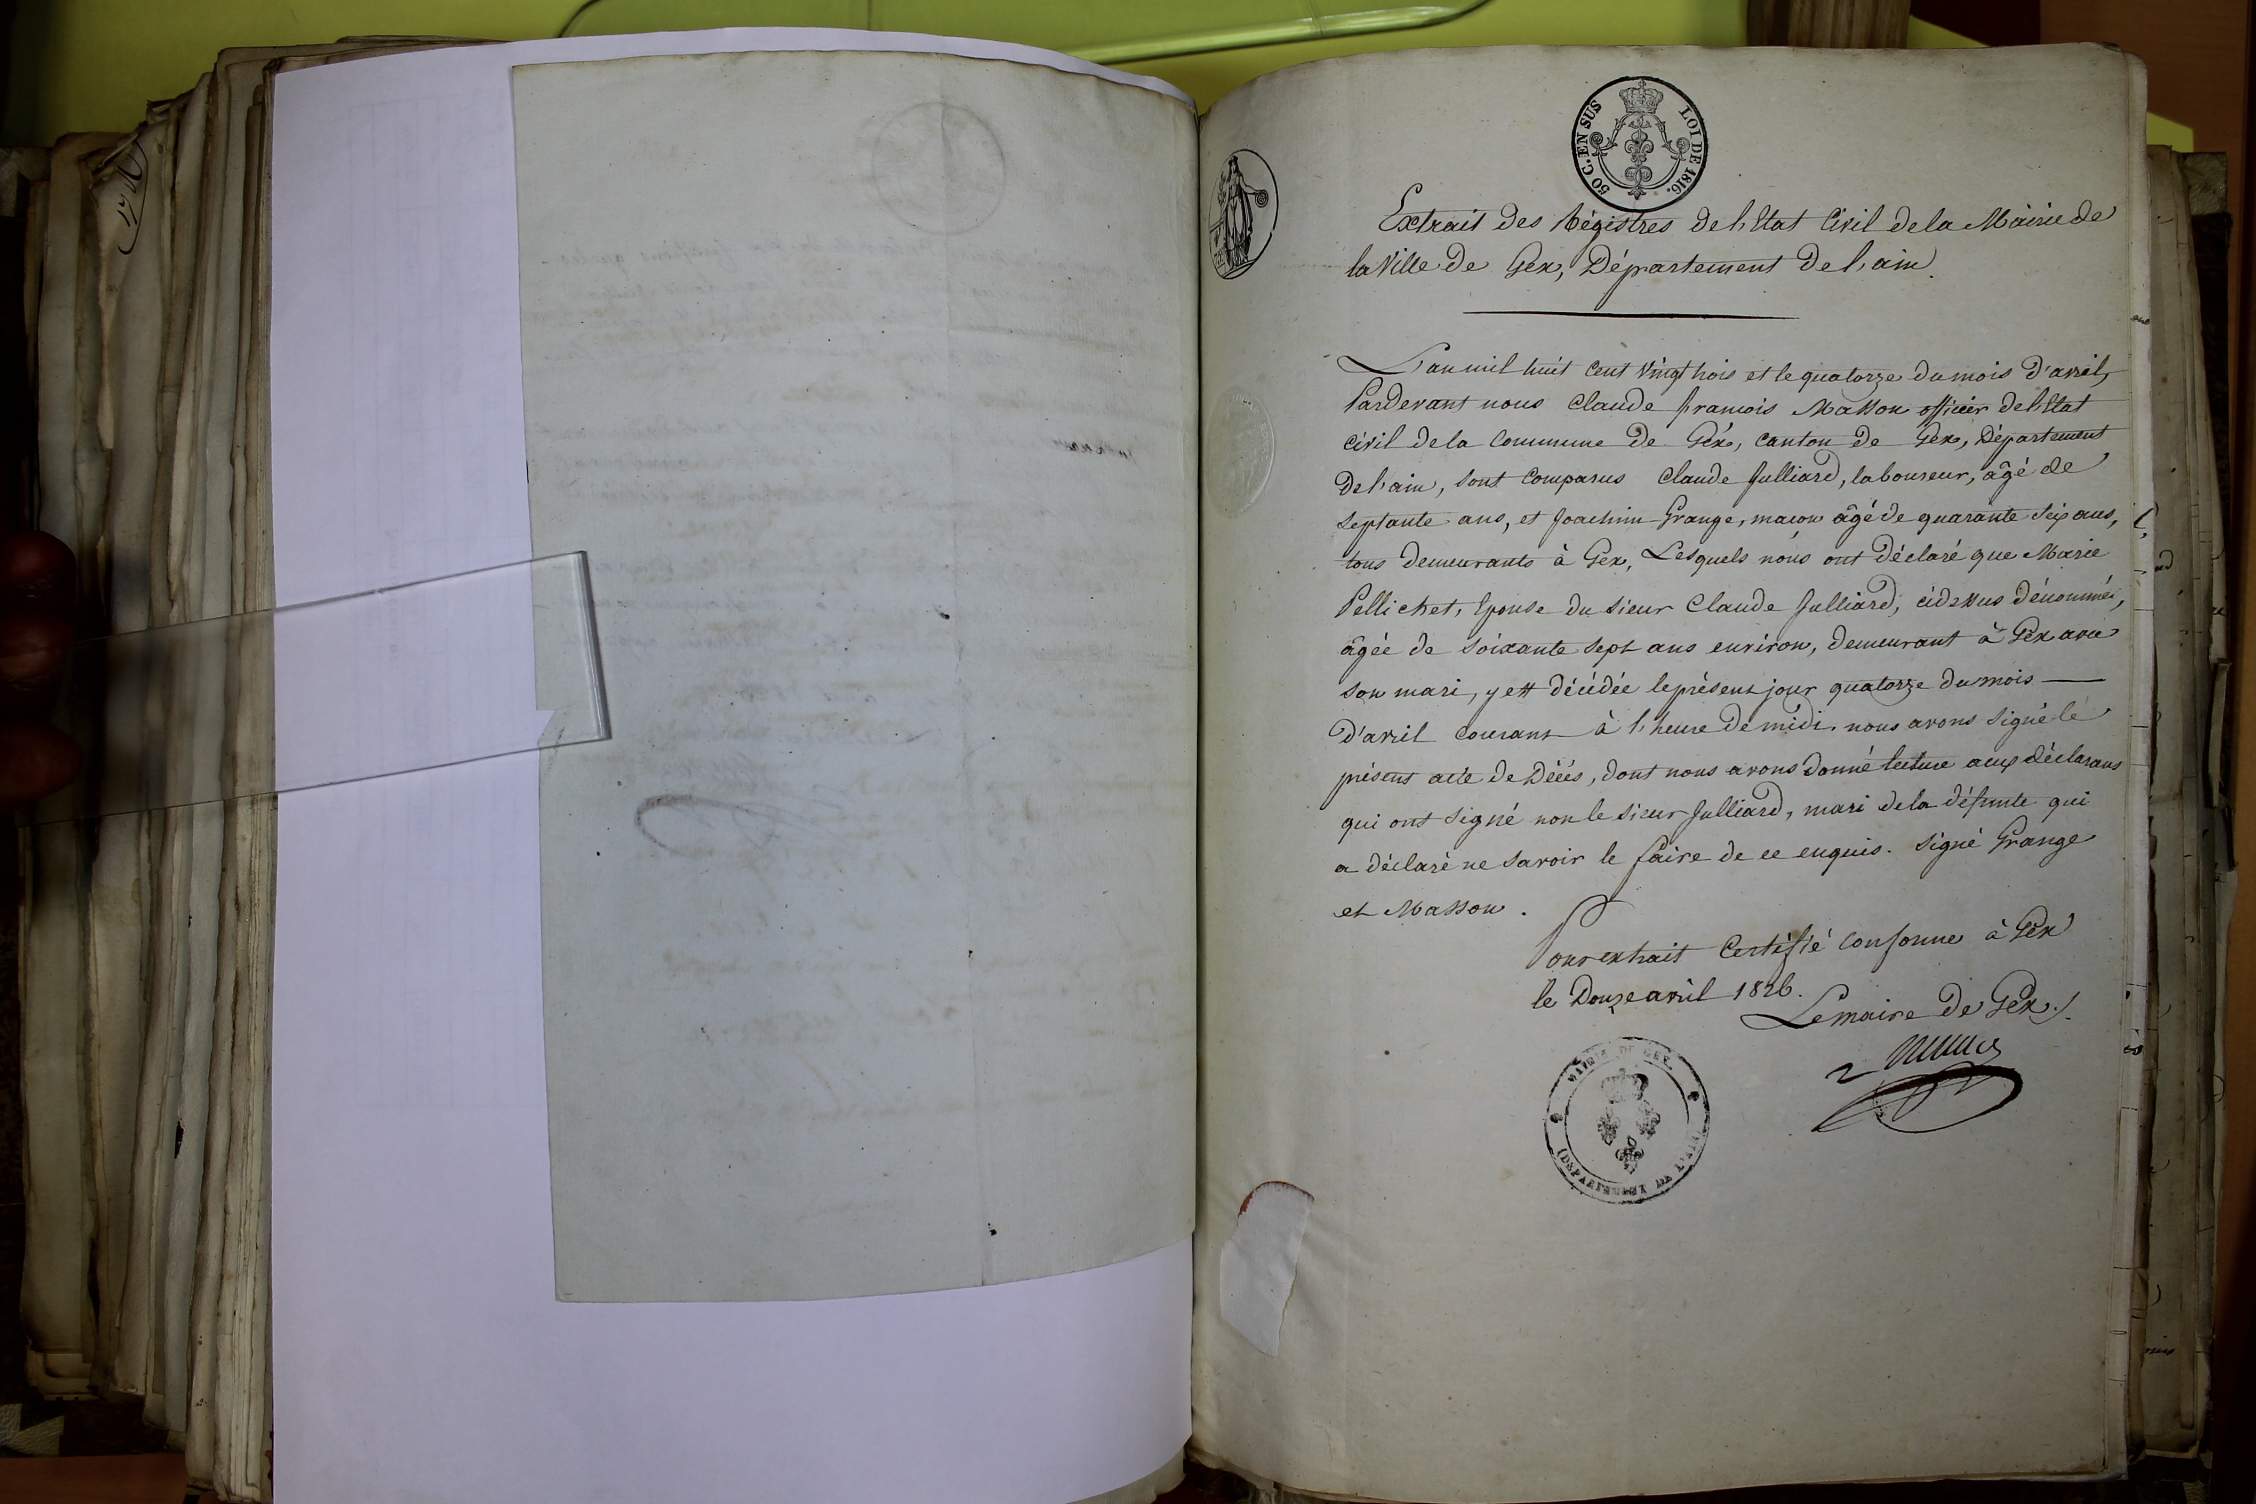 50 C. EN SUS
LOI DE 1816.
Extrait des Régistres de l'Etat Civil de la Mairie de
la Ville de Gex, Département de l'ain.
L'an mil huit cent vingt trois et le quatorze du mois d'avril,
Pardevant nous Claude françois Masson officier de l'Etat
civil de la Commune de Géx, canton de Gex, Département
de l'ain, sont Comparus Claude Julliard, laboureur, âgé de
septante ans, et Joachim Grange, macon âgé de quarante six ans,
tous demeurants à Gex, Lesquels nous ont déclaré que Marie
Pellichet, Epouse du sieur Claude Julliard, cidessus dénommé,
âgée de soixante sept ans environ, demeurant à Gex avec
son mari, y est décédée le présent jour quatorze du mois
d'avril courant à l'heure de midi. nous avons signé le
présent acte de Décés, dont nous avons donné lecture aux déclarans
qui ont signé non le sieur Julliard, mari de la défunte qui
a déclaré ne savoir le faire de ce enquis. signé Grange
et Masson.
Pour extrait Certifié conforme à Gex
le Douze avril 1826.
Le maire de Gex
MAIRIE DE GEX.
(DÉPARTEMENT DE L'AIN)